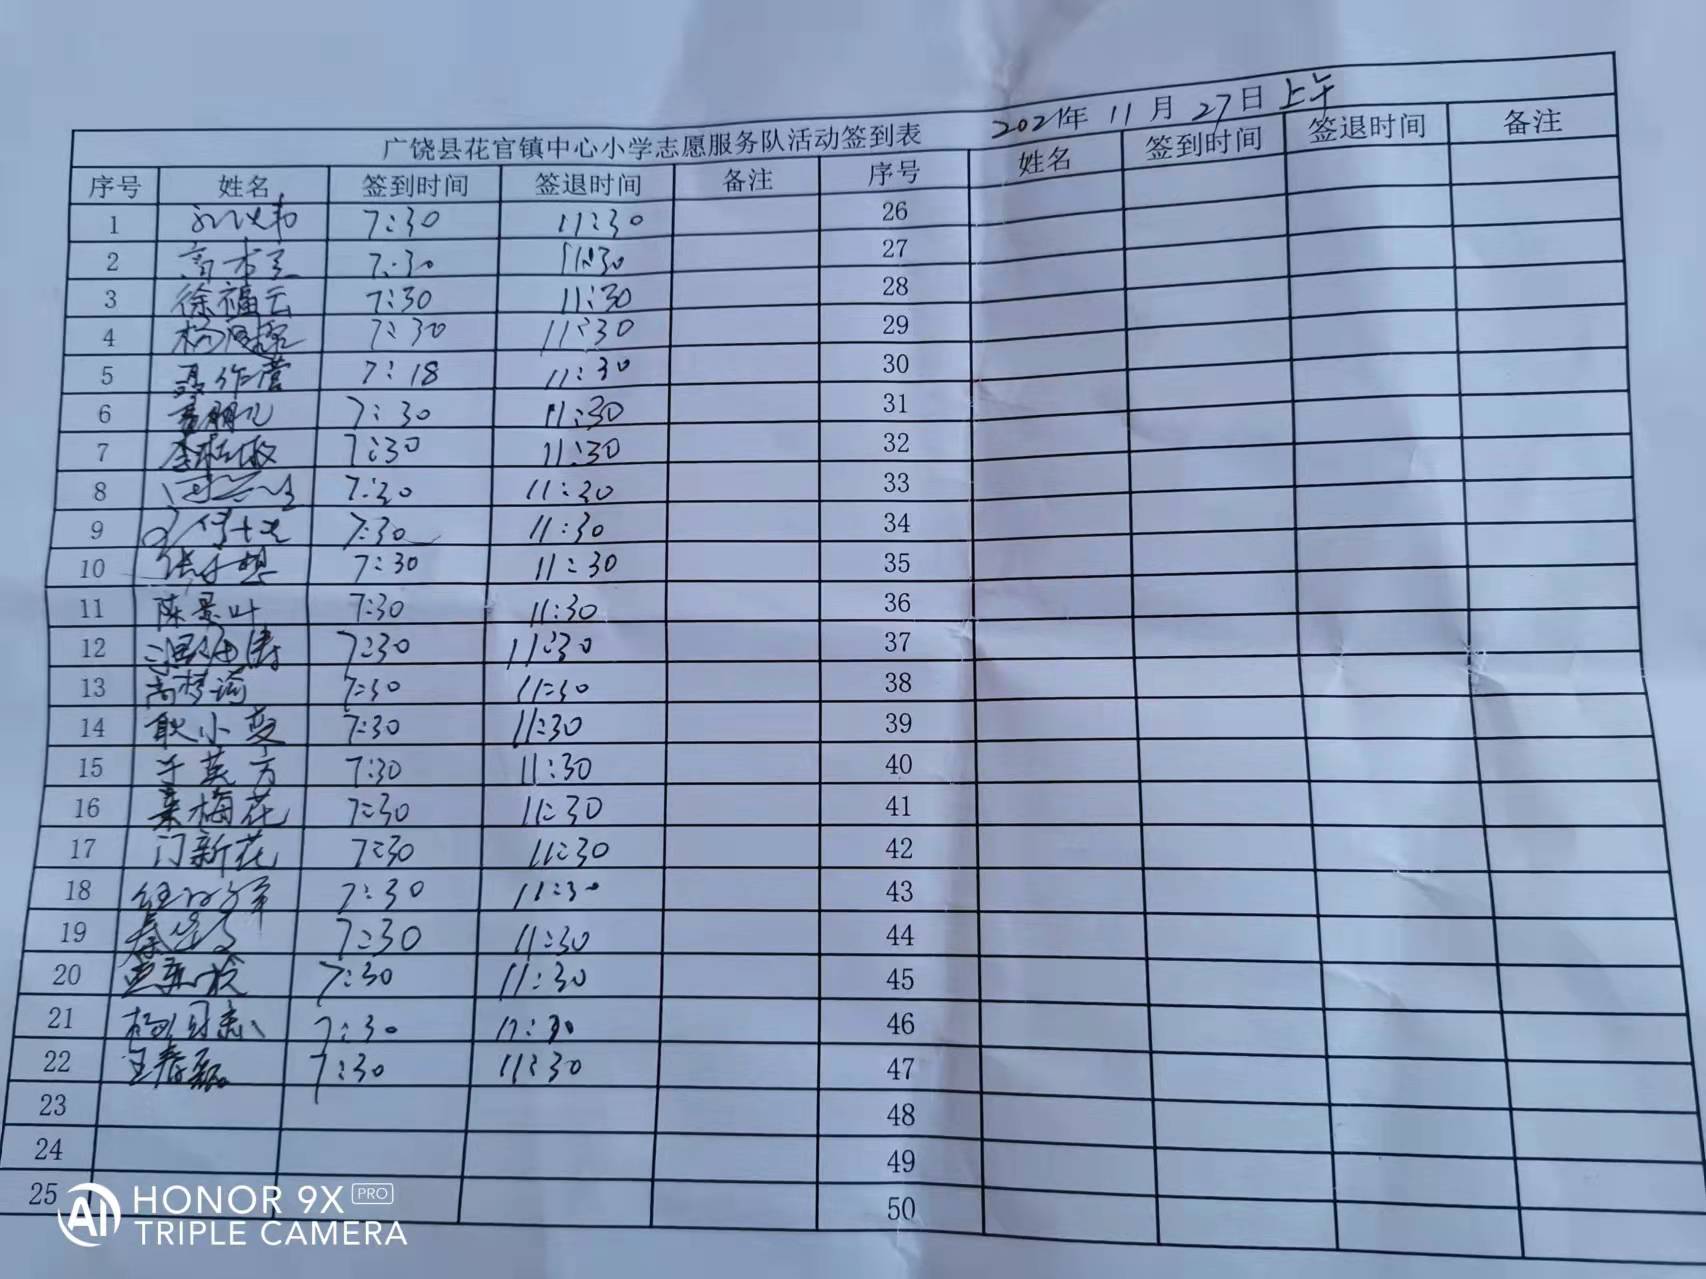 广饶县花官镇中心小学志愿服务队活动签到表 2021年 11月 27日 上午
序号 姓名 签到时间 签退时间 备注 序号 姓名 签到时间 签退时间 备注
1 7:30 11:30 26
2 7:30 11:30 27
3 徐福云 7:30 11:30 28
4 7:30 11:30 29
5 聂作营 7:18 11:30 30
6 7:30 11:30 31
7 7:30 11:30 32
8 7:30 11:30 33
9 7:30 11:30 34
10 7:30 11:30 35
11 陈景叶 7:30 11:30 36
12 7:30 11:30 37
13 高梦瑜 7:30 11:30 38
14 耿小变 7:30 11:30 39
15 于英方 7:30 11:30 40
16 来梅花 7:30 11:30 41
17 门新花 7:30 11:30 42
18 7:30 11:30 43
19 7:30 11:30 44
20 7:30 11:30 45
21 7:30 11:30 46
22 王春磊 7:30 11:30 47
23 48
24 49
25 50
AI HONOR 9X PRO
TRIPLE CAMERA